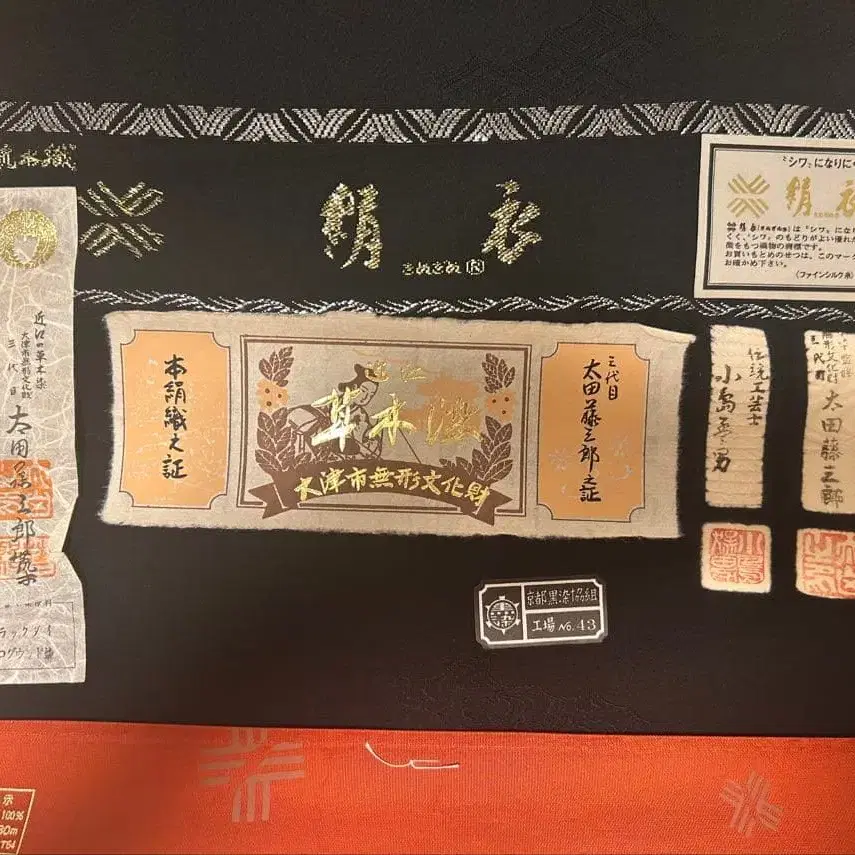 絹衣
きぬぎぬ
®
〝シワ〟になりにく
絹衣
きぬぎぬ
絹衣(きぬぎぬ)は〝シワ〟になり
くく、〝シワ〟のもどりがよい優れた
徴をもつ織物の商標です。
お買いもとめのせつは、このマーク
お確かめ下さい。
(ファインシルク糸)
近江の草木染
大津市無形文化財
三代目
太田藤三郎
本絹織之証
近江
草木染
大津市無形文化財
三代目
太田藤三郎之証
伝統工芸士
小島
三代目
太田藤三郎
京都黒染協組
工場 No.43
ラックダイ
示
100%
30m
T64